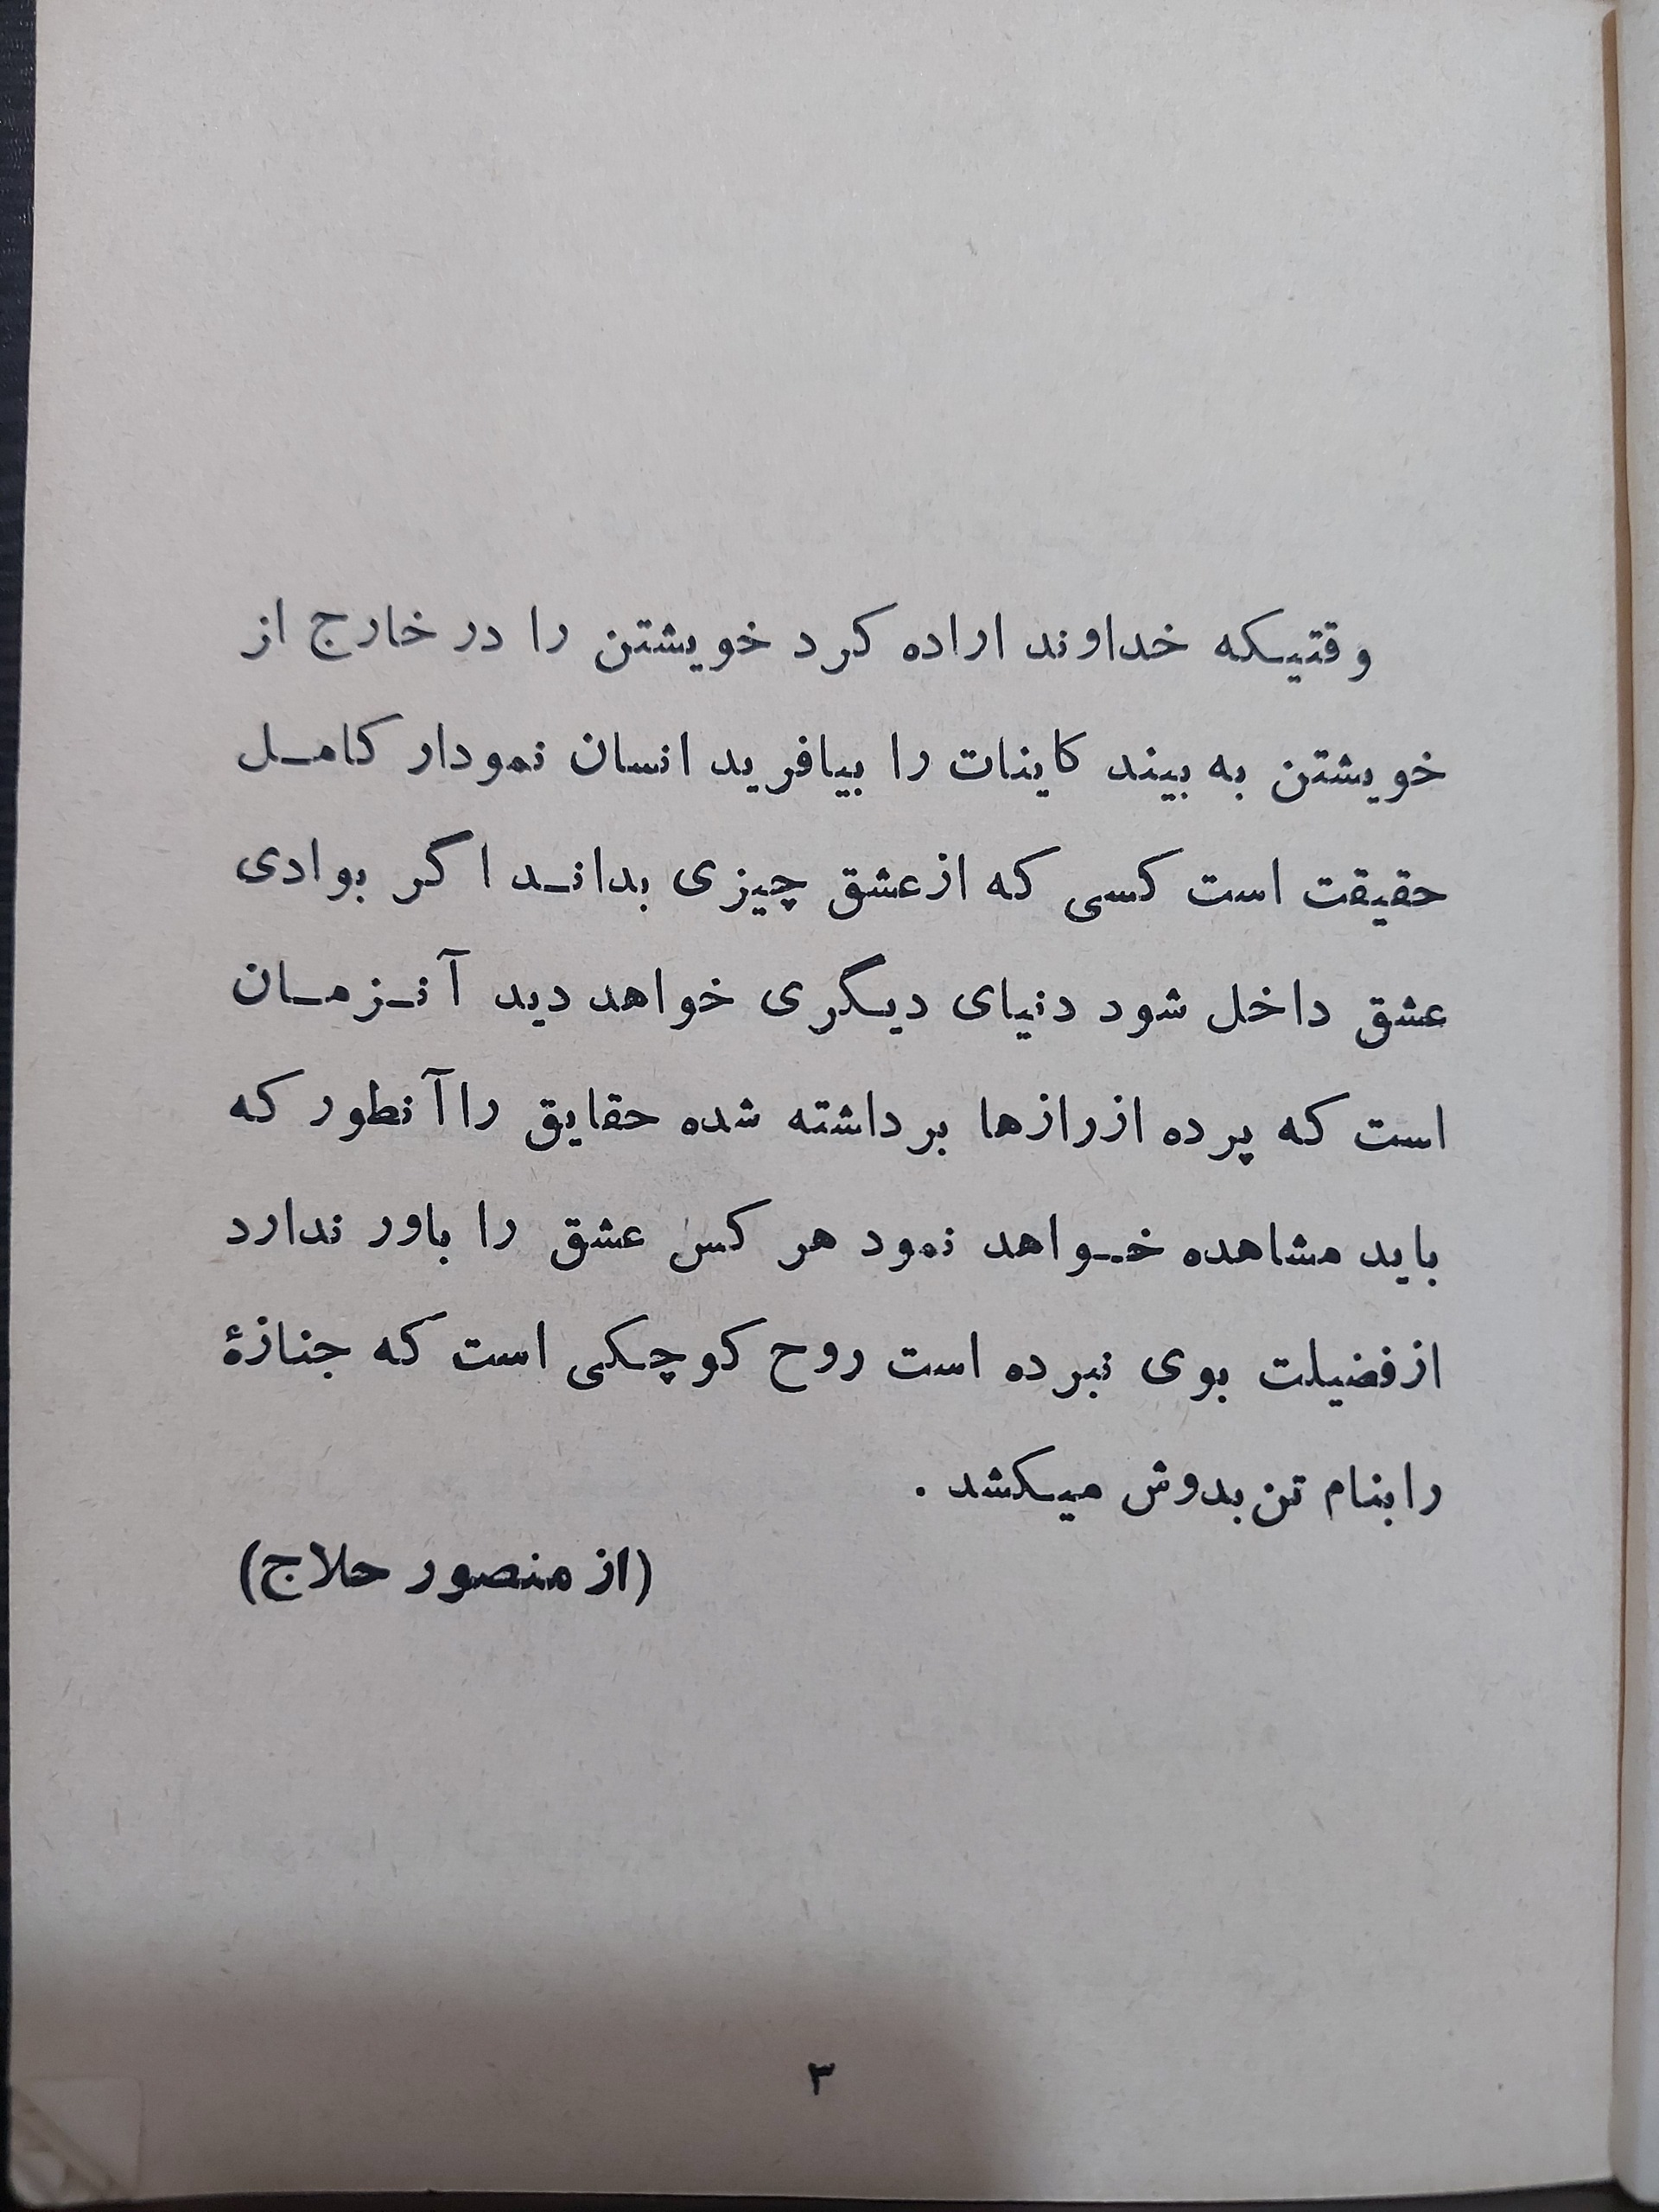 وقتیکه خداوند اراده کرد خویشتن را در خارج از
خویشتن به بیند کاینات را بیافرید انسان نمودار کامل
حقیقت است کسی که از عشق چیزی بداند اگر بوادی
عشق داخل شود دنیای دیگری خواهد دید آنزمان
است که پرده از رازها برداشته شده حقایق را آنطور که
باید مشاهده خواهد نمود هر کس عشق را باور ندارد
از فضیلت بوی نبرده است روح کوچکی است که جنازهٔ
را بنام تن بدوش میکشد .
(از منصور حلاج)
۳